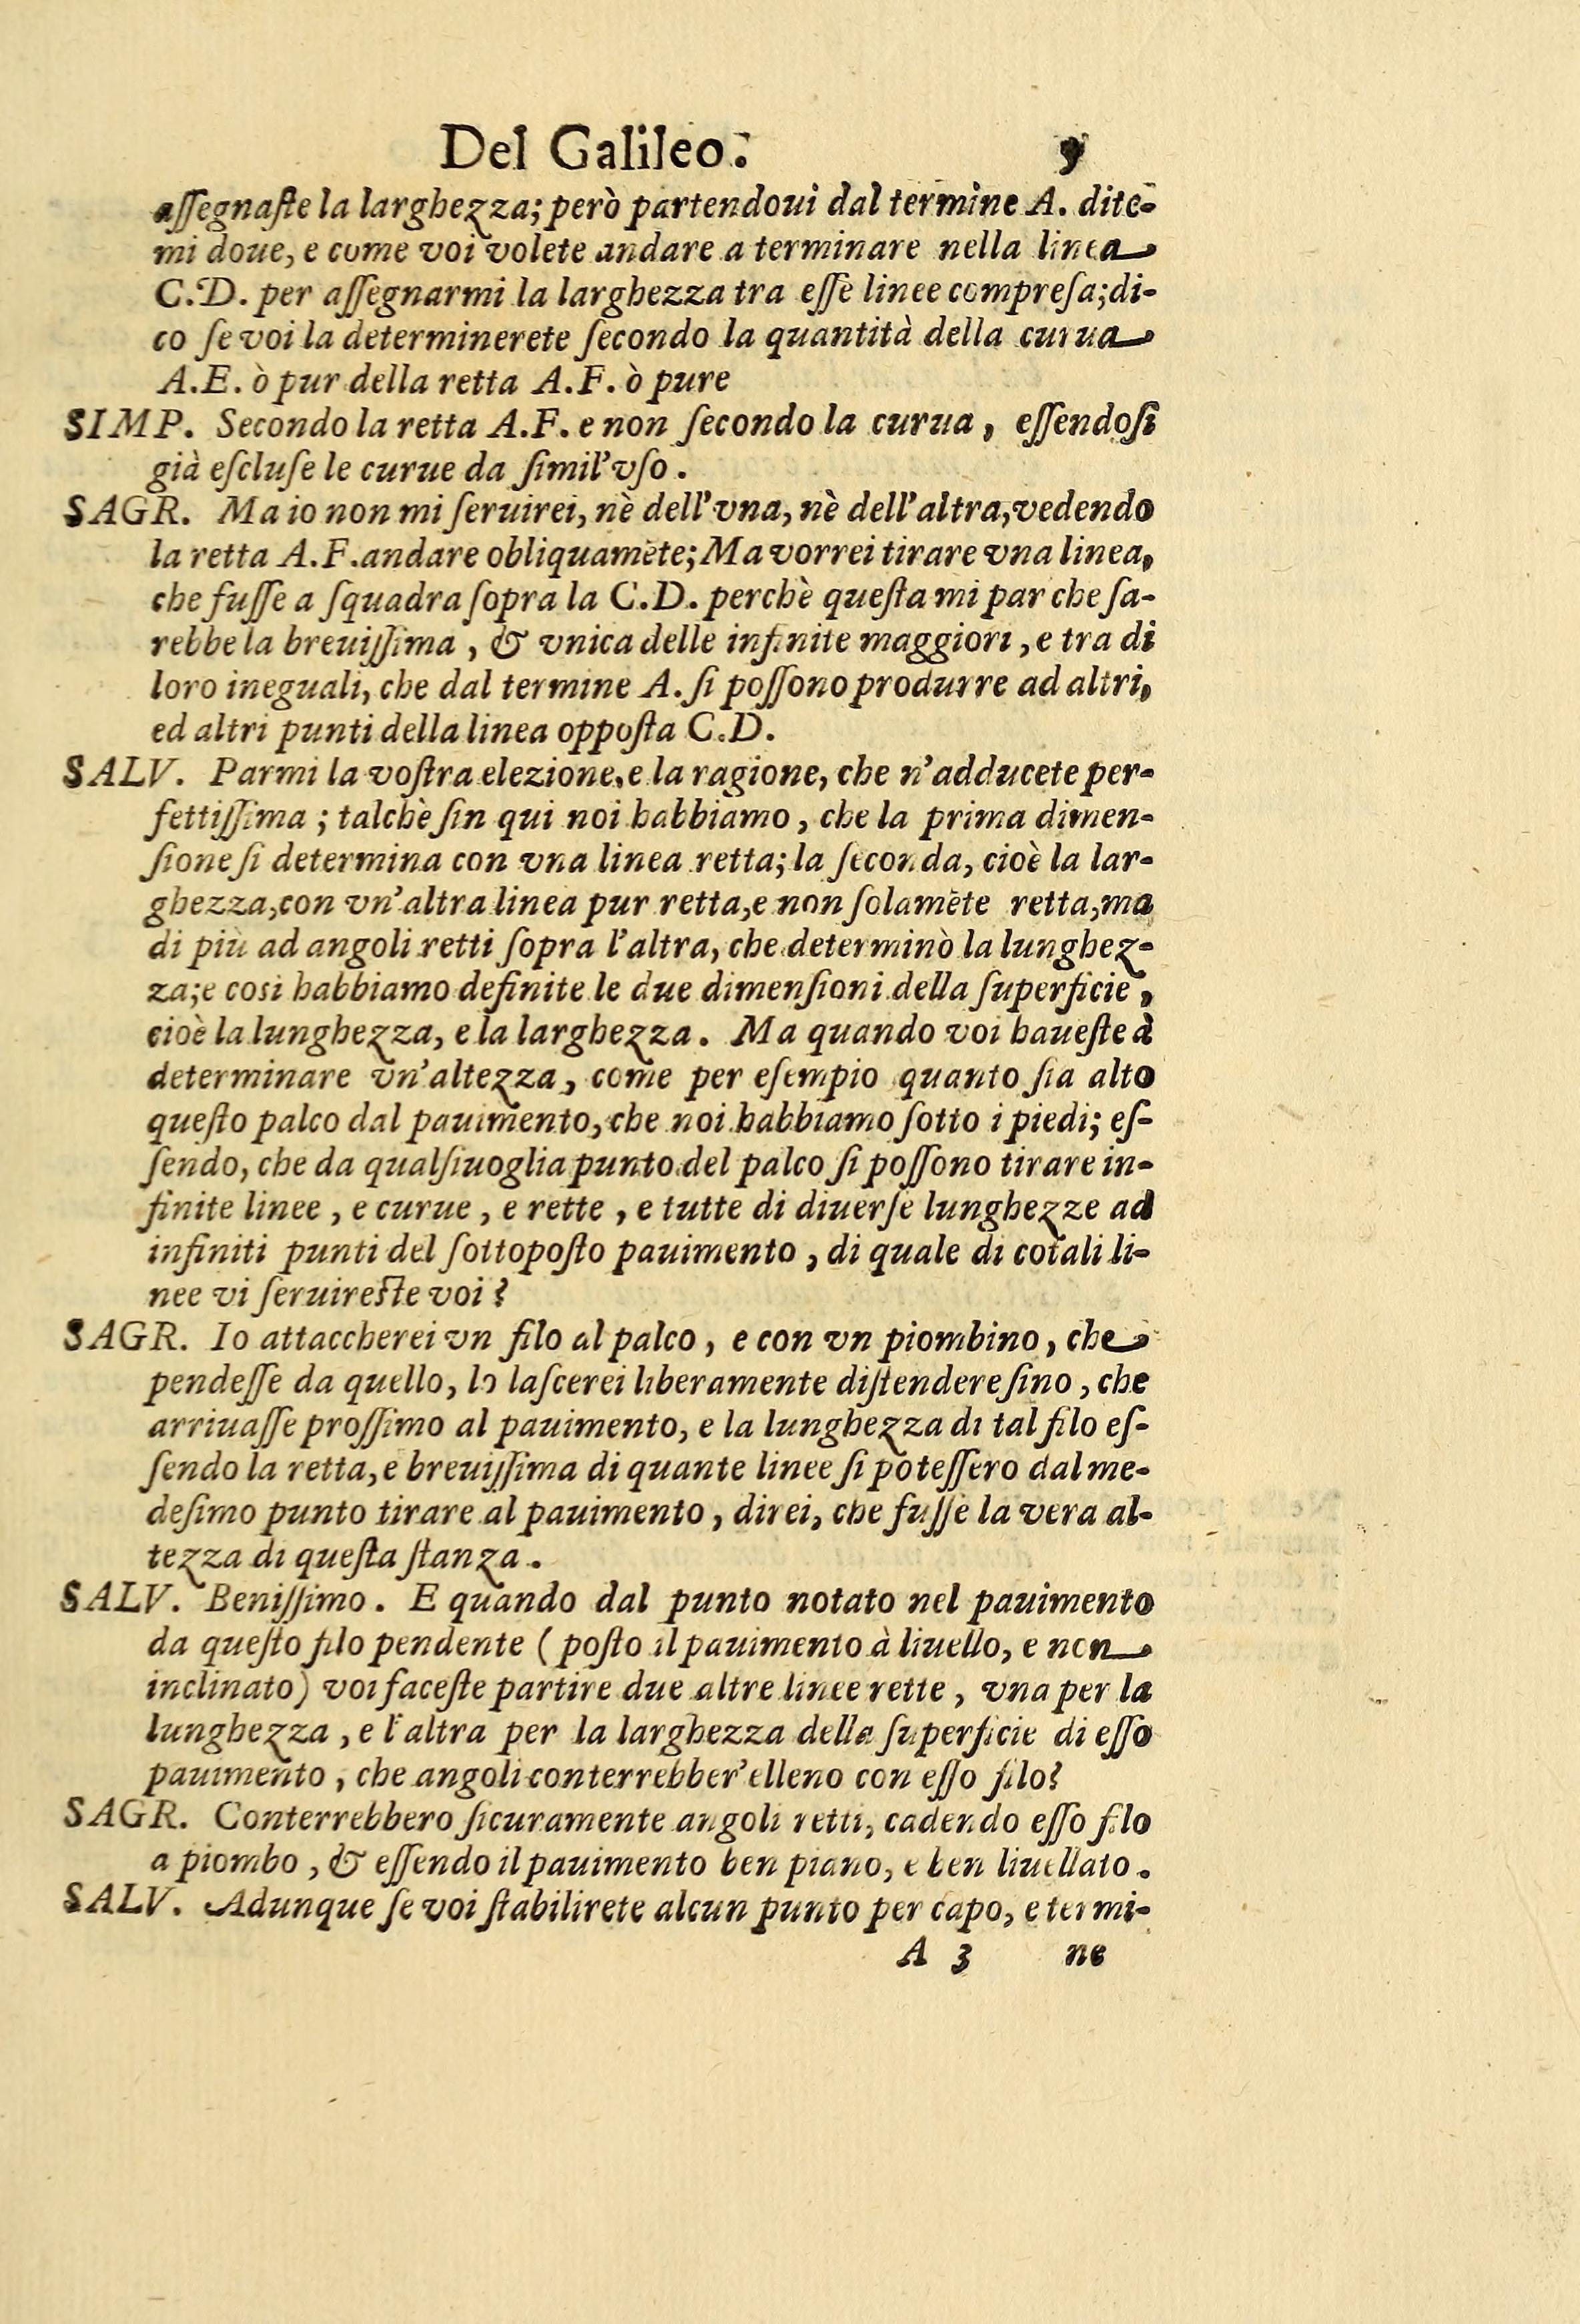 Del Galileo. 5
aſſegnaſte la larghezza; però partendoui dal termine A. dite-
mi doue, e come voi volete andare a terminare nella linea
C.D. per aſſegnarmi la larghezza tra eſſe linee compreſa; di-
co ſe voi la determinerete ſecondo la quantità della curua
A.E. ò pur della retta A.F. ò pure
SIMP. Secondo la retta A.F. e non ſecondo la curua, eſſendoſi
già eſcluſe le curue da ſimil'vſo.
SAGR. Ma io non mi ſeruirei, nè dell'vna, nè dell'altra, vedendo
la retta A.F. andare obliquamēte; Ma vorrei tirare vna linea,
che fuſſe a ſquadra ſopra la C.D. perchè queſta mi par che ſa-
rebbe la breuiſſima, & vnica delle infinite maggiori, e tra di
loro ineguali, che dal termine A. ſi poſſono produrre ad altri,
ed altri punti della linea oppoſta C.D.
SALV. Parmi la voſtra elezione, e la ragione, che n'adducete per-
fettiſſima; talchè ſin qui noi habbiamo, che la prima dimen-
ſione ſi determina con vna linea retta; la ſeconda, cioè la lar-
ghezza, con vn'altra linea pur retta, e non ſolamēte retta, ma
di più ad angoli retti ſopra l'altra, che determinò la lunghez-
za; e così habbiamo definite le due dimenſioni della ſuperficie,
cioè la lunghezza, e la larghezza. Ma quando voi haueſte à
determinare vn'altezza, come per eſempio quanto ſia alto
queſto palco dal pauimento, che noi habbiamo ſotto i piedi; eſ-
ſendo, che da qualſiuoglia punto del palco ſi poſſono tirare in-
finite linee, e curue, e rette, e tutte di diuerſe lunghezze ad
infiniti punti del ſottopoſto pauimento, di quale di cotali li-
nee vi ſeruireſte voi?
SAGR. Io attaccherei vn filo al palco, e con vn piombino, che
pendeſſe da quello, lo laſcerei liberamente diſtendere ſino, che
arriuaſſe proſſimo al pauimento, e la lunghezza di tal filo eſ-
ſendo la retta, e breuiſſima di quante linee ſi poteſſero dal me-
deſimo punto tirare al pauimento, direi, che fuſſe la vera al-
tezza di queſta ſtanza.
SALV. Beniſſimo. E quando dal punto notato nel pauimento
da queſto filo pendente (poſto il pauimento à liuello, e non
inclinato) voi faceſte partire due altre linee rette, vna per la
lunghezza, e l'altra per la larghezza della ſuperficie di eſſo
pauimento, che angoli conterrebber'elleno con eſſo filo?
SAGR. Conterrebbero ſicuramente angoli retti, cadendo eſſo filo
a piombo, & eſſendo il pauimento ben piano, e ben liuellato.
SALV. Adunque ſe voi ſtabilirete alcun punto per capo, e termi-
A 3 ne